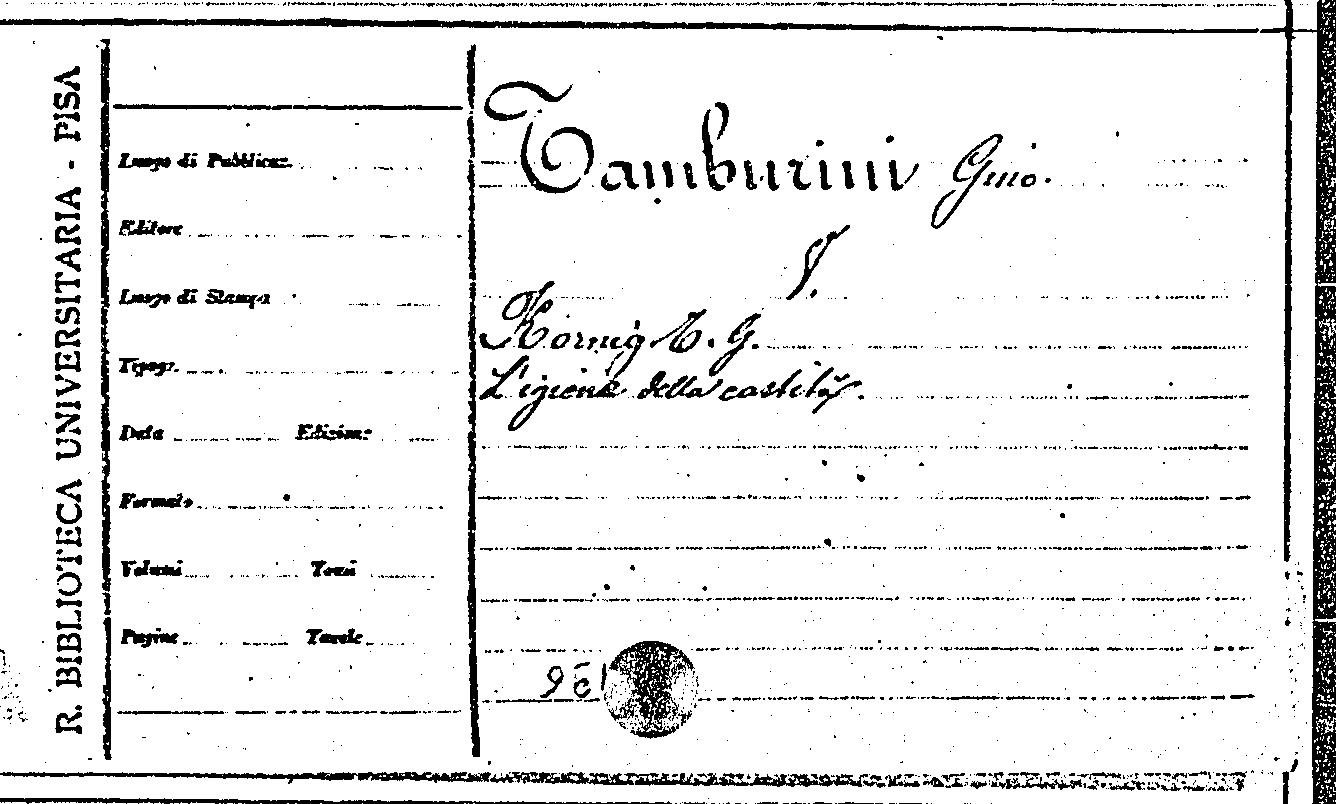 R. BIBLIOTECA UNIVERSITARIA - PISA
Luogo di Pubblicaz.
Editore
Luogo di Stampa
Tipogr.
Data Edizione
Formato
Volumi Tomi
Pagine Tavole
Tamburini Gino.
V.
Kornig T. G.
L'igiene della castità.